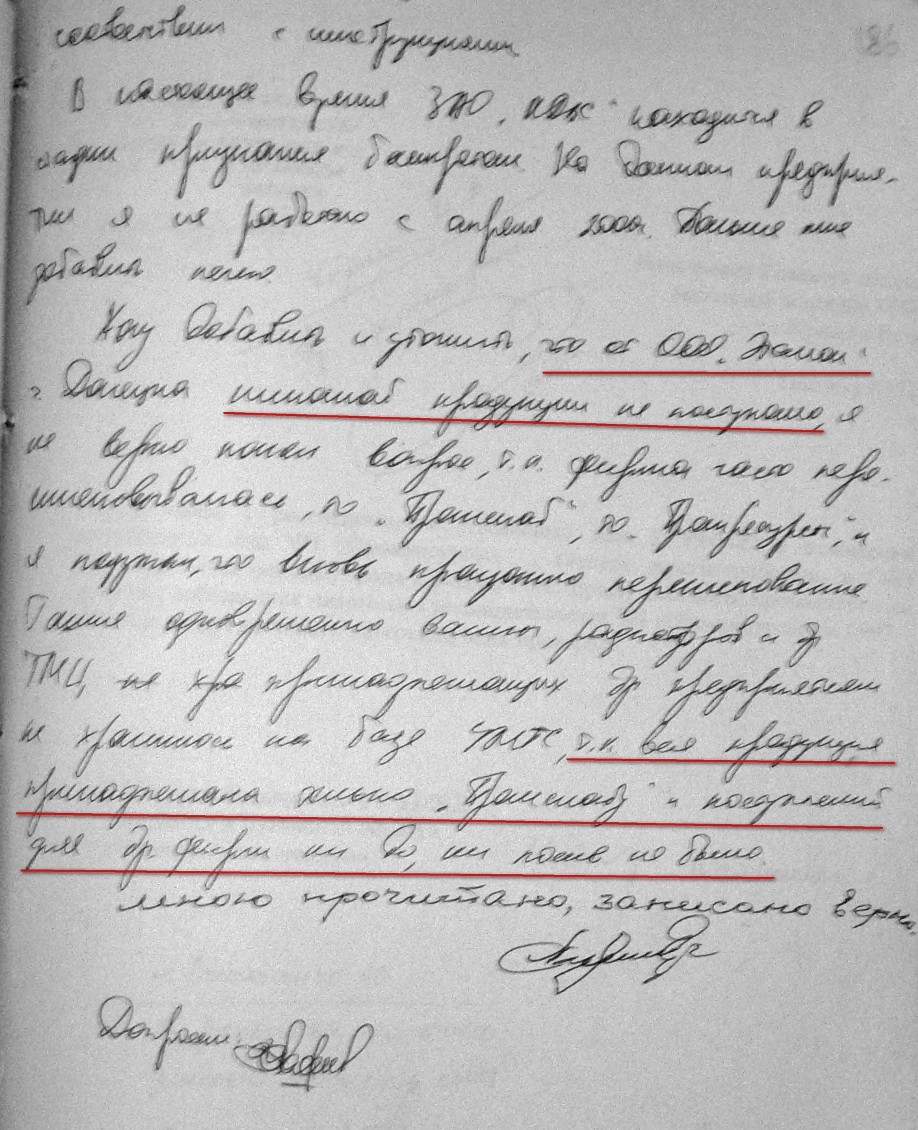 соответствии с инструкциями.
В настоящее время ЗАО „ПДК" находится в
стадии признания банкротом. На данном предприя-
тии я не работаю с апреля 2000г. Больше мне
добавить нечего.
Хочу добавить и уточнить, что от ООО „
г. Донецка никакой продукции не поступало, я
не верно понял вопрос, т.к. фирма часто пере-
именовывалась, то „Промснаб", то „Промресурсы", и
я подумал, что вновь прошло переименование.
Также одновременно ванны, радиаторов и др
ТМЦ, не хра принадлежащих др предприятиям
не хранилось на базе УМТС, т.к. вся продукция
принадлежала только „Промснабу" и поступлений
для др фирм ни до, ни после не было.
мною прочитано, записано верно.
Допросил: